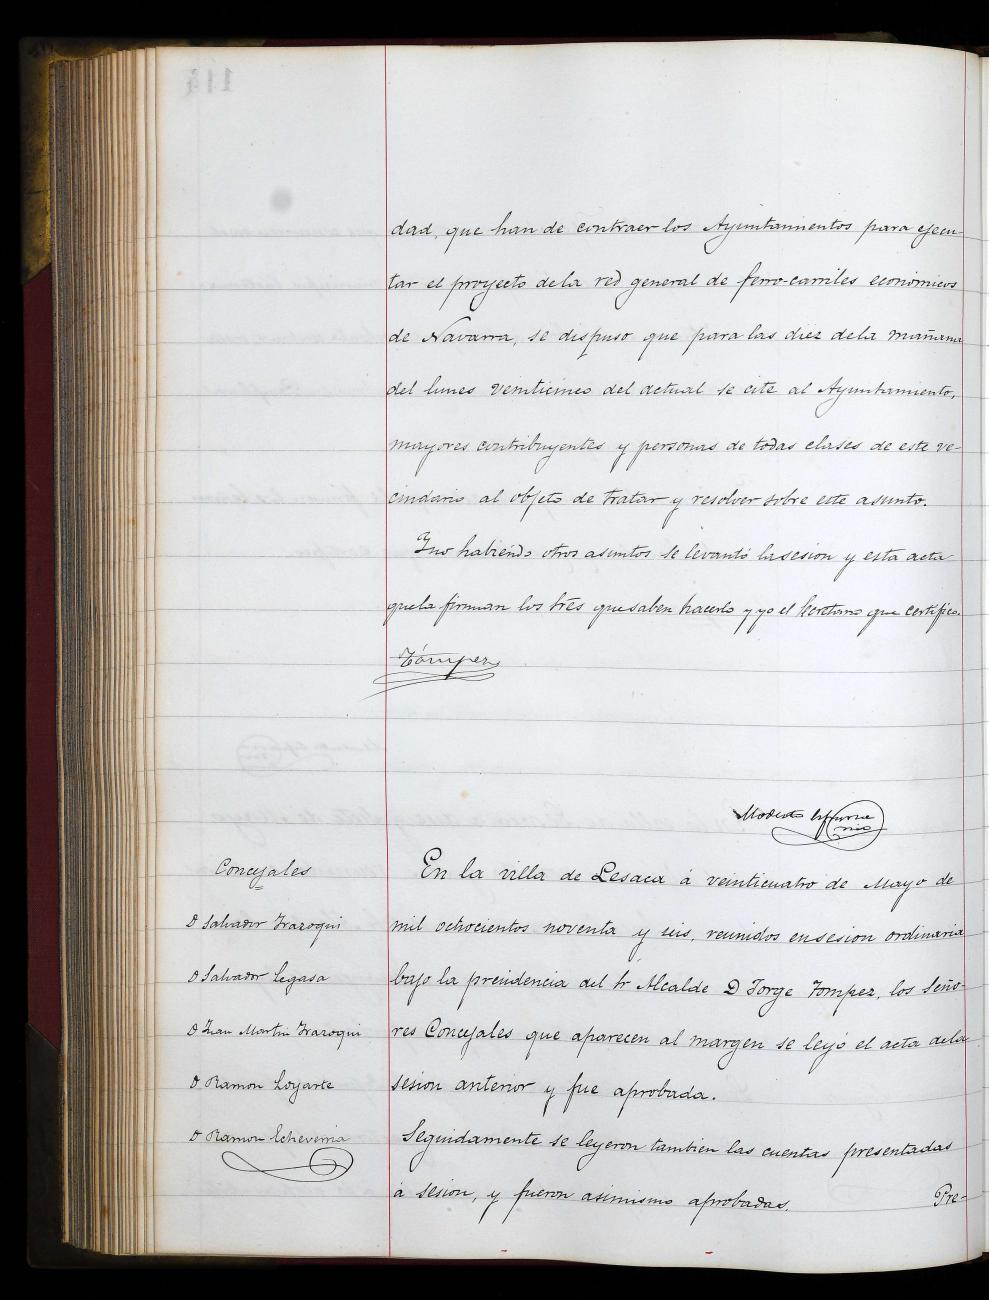 dad, que han de contraer los Ayuntamientos para ejecu-
tar el proyecto de la red general de ferro-carriles económicos
de Navarra, se dispuso que para las diez de la mañana
del lunes veinticinco del actual se cite al Ayuntamiento,
mayores contribuyentes y personas de todas clases de este ve-
cindario al objeto de tratar y resolver sobre este asunto.
Y no habiendo otros asuntos se levantó la sesion y esta acta
que la firman los tres que saben hacerlo y yo el Secretario que certifico.
Tompez
Modesto
Concejales
D Salvador Irazoqui
D Salvador Legasa
D Juan Martin Irazoqui
D Ramon Loyarte
D Ramon Echeverria
En la villa de Lesaca á veinticuatro de Mayo de
mil ochocientos noventa y seis, reunidos en sesion ordinaria
bajo la presidencia del Sr Alcalde D Jorge Tompez, los Seño-
res Concejales que aparecen al margen se leyó el acta de la
sesion anterior y fue aprobada.
Seguidamente se leyeron tambien las cuentas presentadas
á sesion, y fueron asimismo aprobadas. Pre-